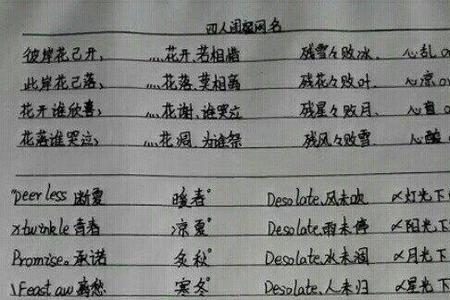 四人闺蜜网名
彼岸花已开、 灬花开、若相惜 残雪々败冰、 心乱
此岸花已落、 灬花落、莫相离 残花々败叶、 心凉
花开谁欣喜、 灬花谢、谁哭泣 残星々败月、 心
花落谁哭泣、 灬花凋、为谁祭 残风々败雪 心酸
"peerless 断夏 暖春° Desolate、风未吹 〆灯光下
xtwinkle 青春 凉夏° Desolate、雨未停 〆阳光下
Promise。承诺 冬秋° Desolate、水未涸 〆月光下
\Feast aw 离愁 寒冬° Desolate、人未归 〆星光下